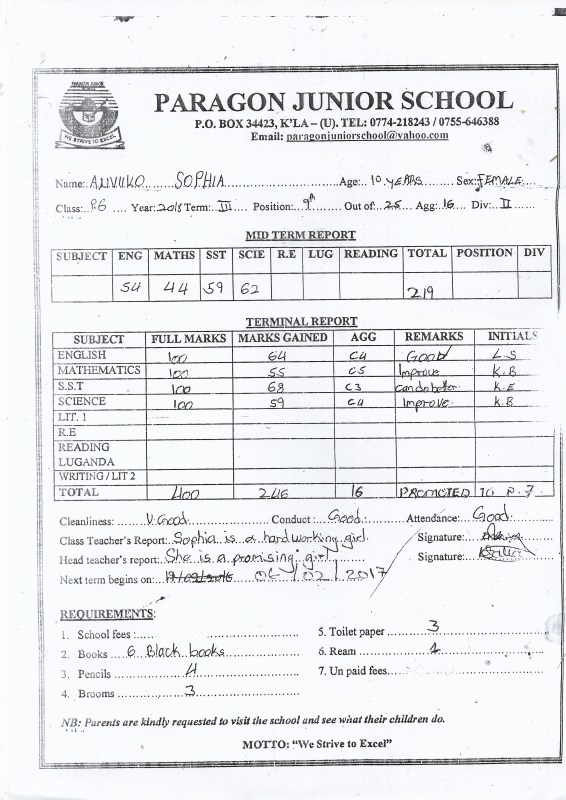 PARAGON JUNIOR SCHOOL
WE STRIVE TO EXCEL
PARAGON JUNIOR SCHOOL
P.O. BOX 34423, K'LA – (U). TEL: 0774-218243 / 0755-646388
Email: paragonjuniorschool@yahoo.com
Name: ALIVUKO SOPHIA Age: 10 YEARS Sex: FEMALE
Class: P.6 Year: 2015 Term: III Position: 9th Out of: 25 Agg: 16 Div: II
MID TERM REPORT
SUBJECT ENG MATHS SST SCIE R.E LUG READING TOTAL POSITION DIV
54 44 59 62 219
TERMINAL REPORT
SUBJECT FULL MARKS MARKS GAINED AGG REMARKS INITIALS
ENGLISH 100 64 C4 Good L.S
MATHEMATICS 100 55 C5 Improve K.B
S.S.T 100 68 C3 can do better K.E
SCIENCE 100 59 C4 Improve K.B
LIT. 1
R.E
READING
LUGANDA
WRITING / LIT 2
TOTAL 400 246 16 PROMOTED TO P.7
Cleanliness: V.Good Conduct: Good Attendance: Good
Class Teacher's Report: Sophia is a hardworking girl Signature:
Head teacher's report: She is a promising girl Signature:
Next term begins on: 06/02/2017
REQUIREMENTS:
1. School fees :
2. Books 6 Black books
3. Pencils 4
4. Brooms 3
5. Toilet paper 3
6. Ream 1
7. Un paid fees
NB: Parents are kindly requested to visit the school and see what their children do.
MOTTO: "We Strive to Excel"